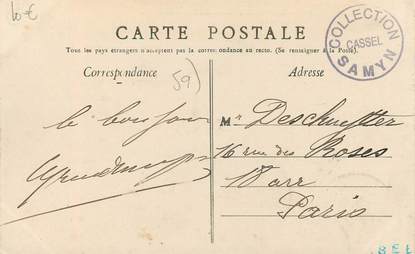 10€
CARTE POSTALE
Tous les pays étrangers n'acceptent pas la correspondance au recto. (Se renseigner à la Poste).
Correspondance
Adresse
59)
COLLECTION
CASSEL
SAMYN
le bonjour
Mr Deschuytter
16 rue des Roses
18 arr
Paris